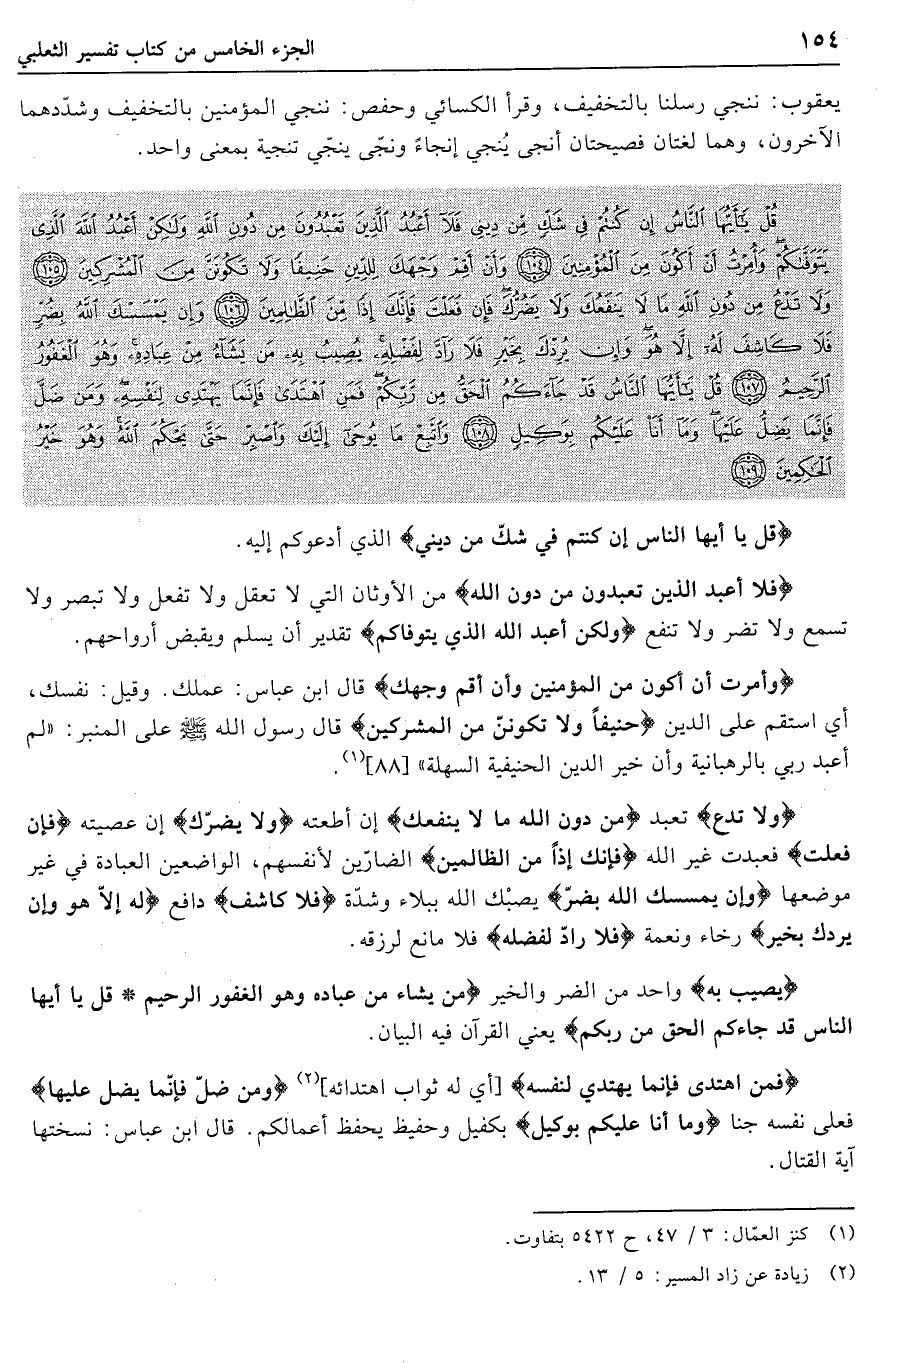 ١٥٤
الجزء الخامس من كتاب تفسير الثعلبي
يعقوب: ننجي رسلنا بالتخفيف، وقرأ الكسائي وحفص: ننجي المؤمنين بالتخفيف وشدّدهما
الآخرون، وهما لغتان فصيحتان أنجى يُنجي إنجاءً ونجّى ينجّي تنجية بمعنى واحد.
قُلْ يَٰٓأَيُّهَا ٱلنَّاسُ إِن كُنتُمْ فِى شَكٍّ مِّن دِينِى فَلَآ أَعْبُدُ ٱلَّذِينَ تَعْبُدُونَ مِن دُونِ ٱللَّهِ وَلَٰكِنْ أَعْبُدُ ٱللَّهَ ٱلَّذِى
يَتَوَفَّىٰكُمْ ۖ وَأُمِرْتُ أَنْ أَكُونَ مِنَ ٱلْمُؤْمِنِينَ ١٠٤ وَأَنْ أَقِمْ وَجْهَكَ لِلدِّينِ حَنِيفًا وَلَا تَكُونَنَّ مِنَ ٱلْمُشْرِكِينَ ١٠٥
وَلَا تَدْعُ مِن دُونِ ٱللَّهِ مَا لَا يَنفَعُكَ وَلَا يَضُرُّكَ ۖ فَإِن فَعَلْتَ فَإِنَّكَ إِذًا مِّنَ ٱلظَّٰلِمِينَ ١٠٦ وَإِن يَمْسَسْكَ ٱللَّهُ بِضُرٍّ
فَلَا كَاشِفَ لَهُۥٓ إِلَّا هُوَ ۖ وَإِن يُرِدْكَ بِخَيْرٍ فَلَا رَآدَّ لِفَضْلِهِۦ ۚ يُصِيبُ بِهِۦ مَن يَشَآءُ مِنْ عِبَادِهِۦ ۚ وَهُوَ ٱلْغَفُورُ
ٱلرَّحِيمُ ١٠٧ قُلْ يَٰٓأَيُّهَا ٱلنَّاسُ قَدْ جَآءَكُمُ ٱلْحَقُّ مِن رَّبِّكُمْ ۖ فَمَنِ ٱهْتَدَىٰ فَإِنَّمَا يَهْتَدِى لِنَفْسِهِۦ ۖ وَمَن ضَلَّ
فَإِنَّمَا يَضِلُّ عَلَيْهَا ۖ وَمَآ أَنَا۠ عَلَيْكُم بِوَكِيلٍ ١٠٨ وَٱتَّبِعْ مَا يُوحَىٰٓ إِلَيْكَ وَٱصْبِرْ حَتَّىٰ يَحْكُمَ ٱللَّهُ ۚ وَهُوَ خَيْرُ
ٱلْحَٰكِمِينَ ١٠٩
﴿قل يا أيها الناس إن كنتم في شكّ من ديني﴾ الذي أدعوكم إليه.
﴿فلا أعبد الذين تعبدون من دون الله﴾ من الأوثان التي لا تعقل ولا تفعل ولا تبصر ولا
تسمع ولا تضر ولا تنفع ﴿ولكن أعبد الله الذي يتوفاكم﴾ تقدير أن يسلم ويقبض أرواحهم.
﴿وأمرت أن أكون من المؤمنين وأن أقم وجهك﴾ قال ابن عباس: عملك. وقيل: نفسك،
أي استقم على الدين ﴿حنيفاً ولا تكوننّ من المشركين﴾ قال رسول الله ﷺ على المنبر: «لم
أعبد ربي بالرهبانية وأن خير الدين الحنيفية السهلة» [٨٨](١).
﴿ولا تدع﴾ تعبد ﴿من دون الله ما لا ينفعك﴾ إن أطعته ﴿ولا يضرّك﴾ إن عصيته ﴿فإن
فعلت﴾ فعبدت غير الله ﴿فإنك إذاً من الظالمين﴾ الضارّين لأنفسهم، الواضعين العبادة في غير
موضعها ﴿وإن يمسسك الله بضرّ﴾ يصبْك الله ببلاء وشدّة ﴿فلا كاشف﴾ دافع ﴿له إلاّ هو وإن
يردك بخير﴾ رخاء ونعمة ﴿فلا رادّ لفضله﴾ فلا مانع لرزقه.
﴿يصيب به﴾ واحد من الضر والخير ﴿من يشاء من عباده وهو الغفور الرحيم * قل يا أيها
الناس قد جاءكم الحق من ربكم﴾ يعني القرآن فيه البيان.
﴿فمن اهتدى فإنما يهتدي لنفسه﴾ [أي له ثواب اهتدائه](٢) ﴿ومن ضلّ فإنّما يضل عليها﴾
فعلى نفسه جنا ﴿وما أنا عليكم بوكيل﴾ بكفيل وحفيظ يحفظ أعمالكم. قال ابن عباس: نسختها
آية القتال.
(١) كنز العمّال: ٣ / ٤٧، ح ٥٤٢٢ بتفاوت.
(٢) زيادة عن زاد المسير: ٥ / ١٣.